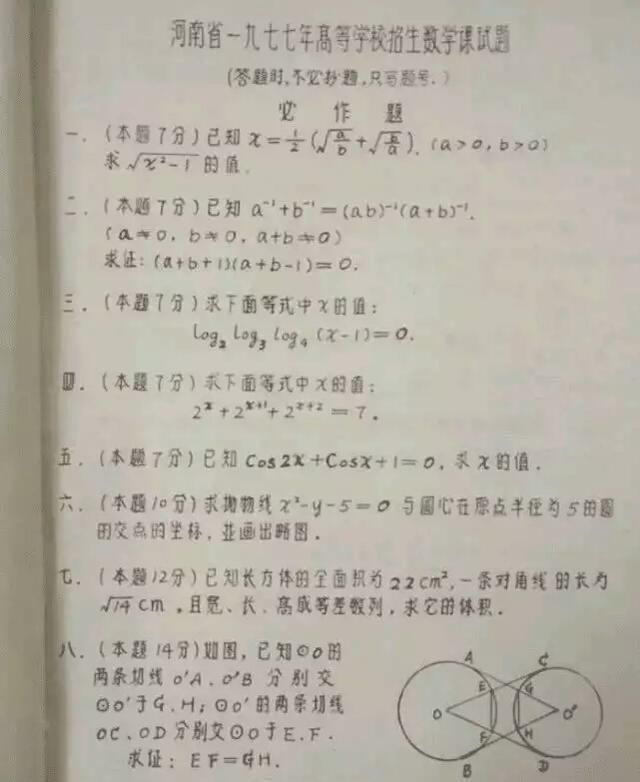 河南省一九七七年高等学校招生数学课试题
(答题时,不必抄题,只写题号.)
必 作 题
一.(本题7分)已知 x=½(√(a/b)+√(b/a)).(a>0,b>0)
求√(x²-1)的值.
二.(本题7分)已知 a⁻¹+b⁻¹=(ab)⁻¹(a+b)⁻¹.
(a≠0, b≠0, a+b≠0)
求证:(a+b+1)(a+b-1)=0.
三.(本题7分)求下面等式中x的值:
log₂ log₃ log₄ (x-1)=0.
四.(本题7分)求下面等式中x的值:
2ˣ+2ˣ⁺¹+2ˣ⁺²=7.
五.(本题7分)已知 Cos2x+Cosx+1=0,求x的值.
六.(本题10分)求抛物线 x²-y-5=0 与圆心在原点半径为5的圆
的交点的坐标,並画出略图.
七.(本题12分)已知长方体的全面积为22cm²,一条对角线的长为
√14 cm,且宽、长、高成等差数列,求它的体积.
八.(本题14分)如图,已知⊙O的
两条切线O'A、O'B分别交
⊙O'于G.H;⊙O'的两条切线
OC、OD分别交⊙O于E.F.
求证:EF=GH.
A C
E G
O O'
F H
B D